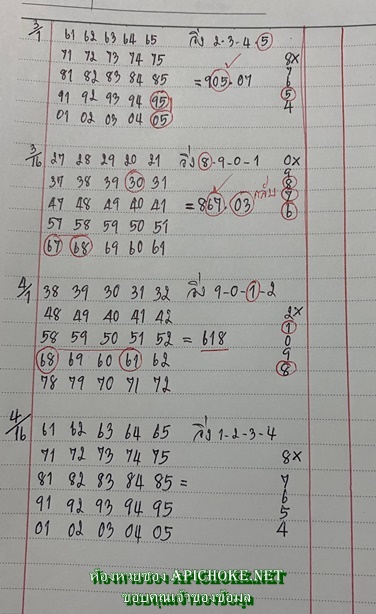 3/1 61 62 63 64 65 วิ่ง 2-3-4-5
71 72 73 74 75 8x
81 82 83 84 85 = 905.07 7
6
91 92 93 94 95 5
01 02 03 04 05 4
3/16 27 28 29 20 21 วิ่ง 8-9-0-1 0x
37 38 39 30 31 9
8
47 48 49 40 41 = 867.03 กลับ 7
57 58 59 50 51 6
67 68 69 60 61
4/1 38 39 30 31 32 วิ่ง 9-0-1-2
48 49 40 41 42 2x
1
58 59 50 51 52 = 618 0
68 69 60 61 62 9
8
78 79 70 71 72
4/16 61 62 63 64 65 วิ่ง 1-2-3-4
71 72 73 74 75 8x
81 82 83 84 85 = 7
6
91 92 93 94 95 5
01 02 03 04 05 4
ห้องหวยของ APICHOKE.NET
ขอบคุณเจ้าของข้อมูล